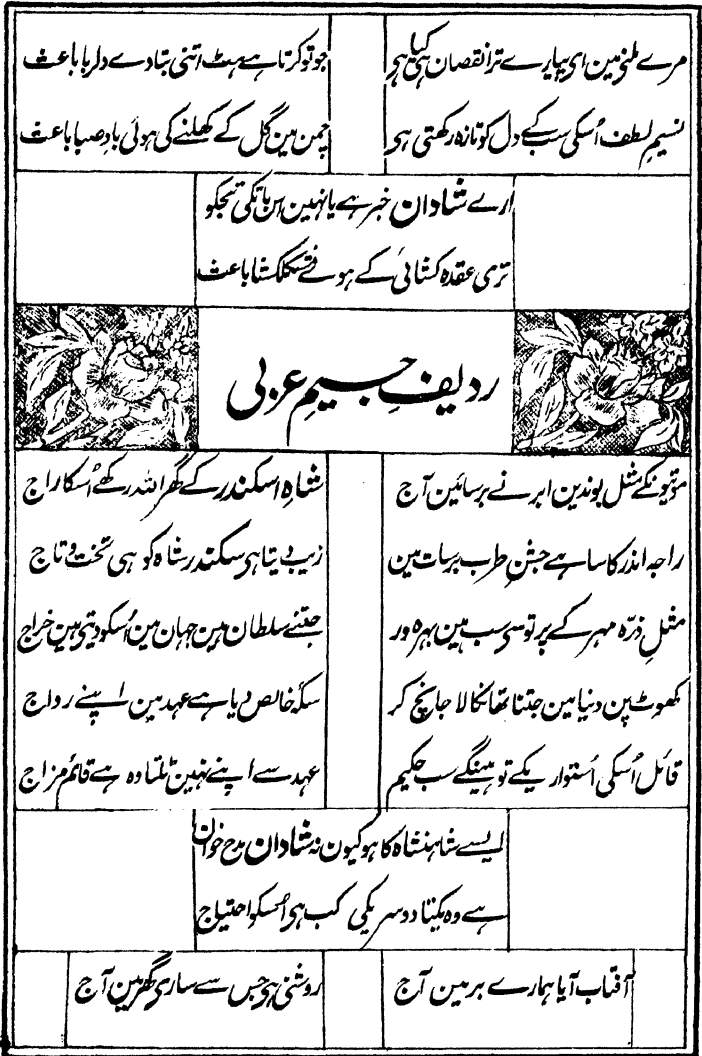 مرے ملنے مین ای پیارے ترا نقصان ہی کیا ہی
جو تو کرتا ہے ہٹ اتنی بتا دے دلربا باعث
نسیمِ لطف اُسکی سب کے دل کو تازہ رکھتی ہی
چمن مین گل کے کھلنے کی ہوئی بادِ صبا باعث
ارے شادان خبر ہے یا نہین اس بات کی تجکو
تری عقدہ کشائی کے ہوئے مشکلکشا باعث
ردیفِ جیمِ عربی
موتیونکے مثل بوندین ابر نے برسائین آج
شاہِ اسکندر کے گھر اللہ رکھے اُسکا راج
راجہ اندر کا سا ہے جشنِ طرب برسات مین
زیب دیتا ہی سکندر شاہ کو ہی تخت و تاج
مثلِ ذرّہ مہر کے پرتو سی سب ہین بہرہ ور
جتنے سلطان ہین جہان مین اُسکو دیتی ہین خراج
کھوٹ پن دنیا مین جتنا تھا نکالا جانچ کر
سکۂ خالص دیا ہے عہد مین اپنے رواج
قائل اُسکی اُستواریکے تو ہینگے سب حکیم
عہد سے اپنے نہین ٹلتا وہ ہے قائم مزاج
ایسے شاہنشاہ کا ہو کیون نہ شادان مدح خوان
ہے وہ یکتا دوسریکی کب ہی اُسکو احتیاج
آفتاب آیا ہمارے بر مین آج
روشنی ہی جس سے ساری گھر مین آج